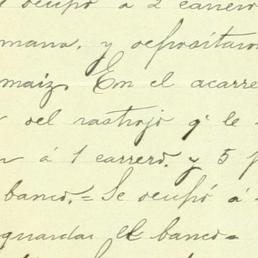 ocupó á 2 carrero
mana, y depositaro
maiz. En el acarre
del rastrojo q' le
á 1 carrero, y 5 p
banco. = Se ocupó á
guardar el banco =